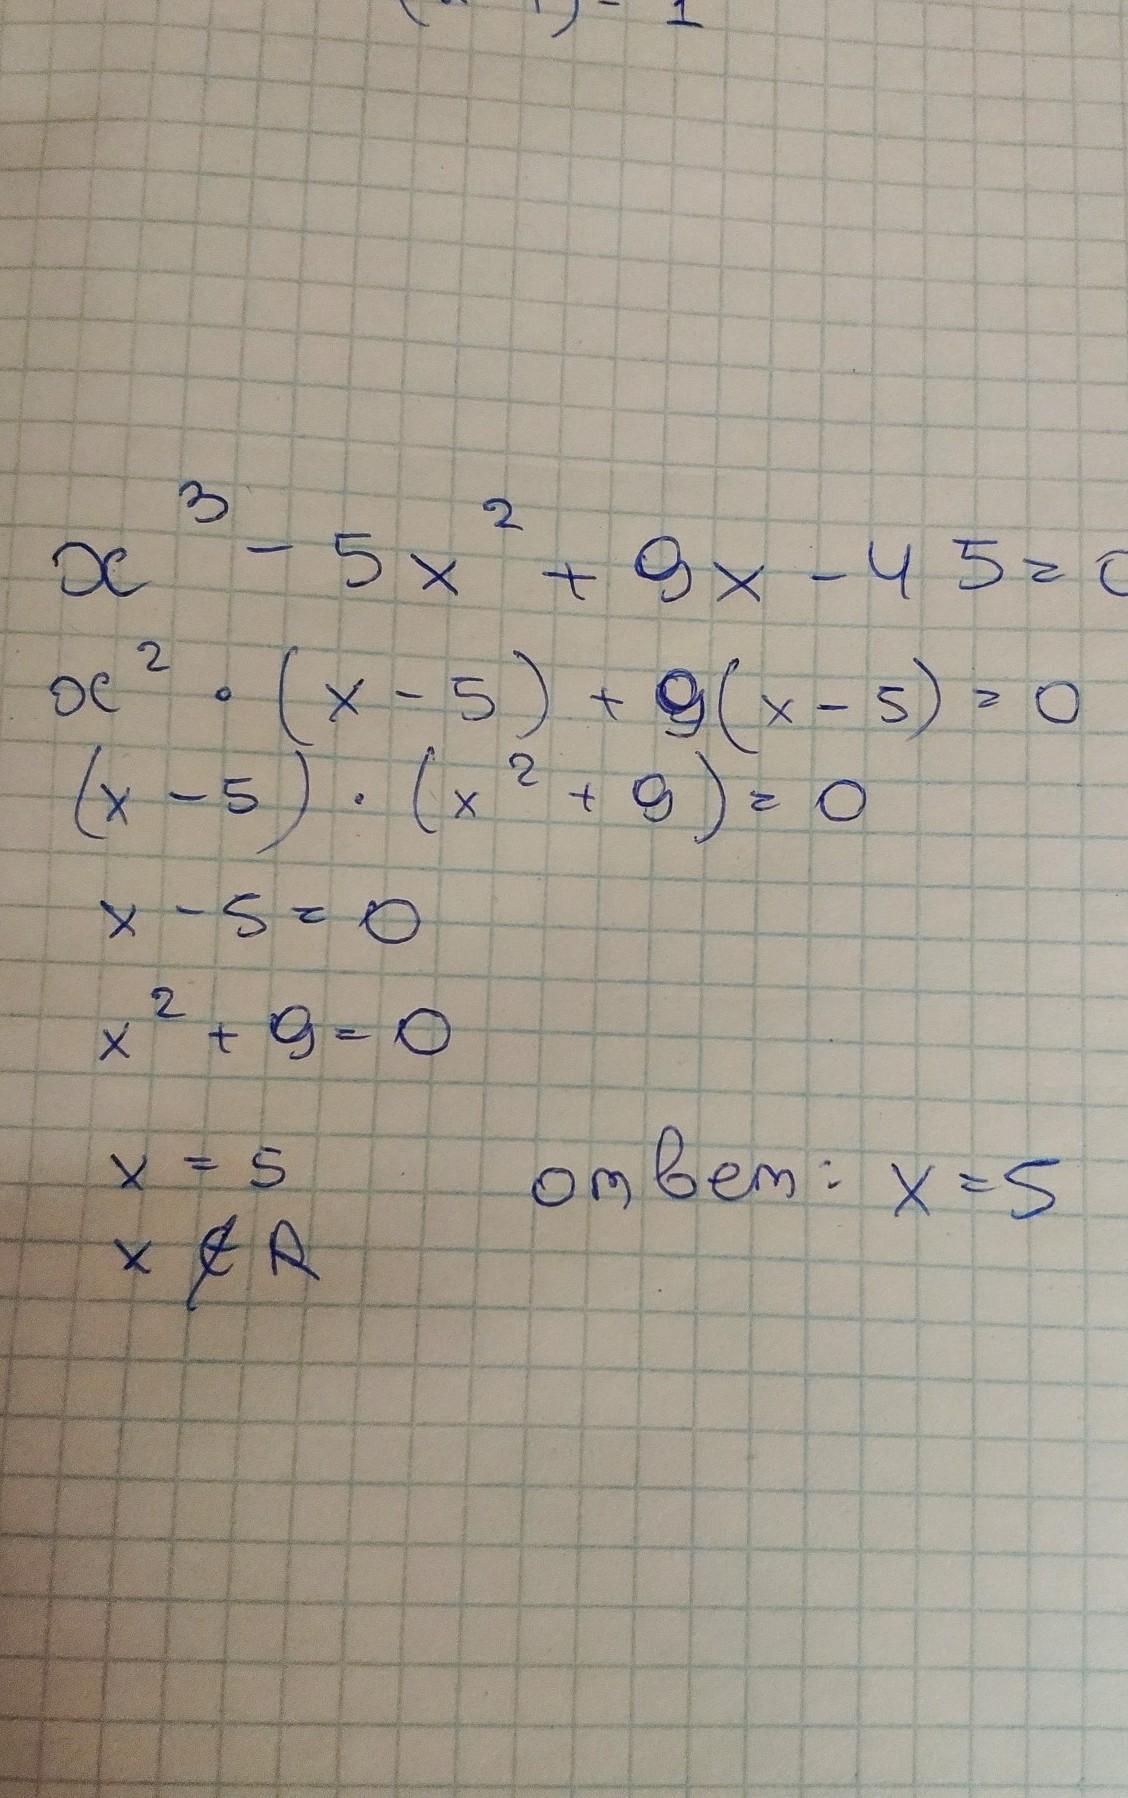 x³ - 5x² + 9x - 45 = 0
x² · (x - 5) + 9(x - 5) = 0
(x - 5) · (x² + 9) = 0
x - 5 = 0
x² + 9 = 0
x = 5
x ∉ R
ответ: x = 5